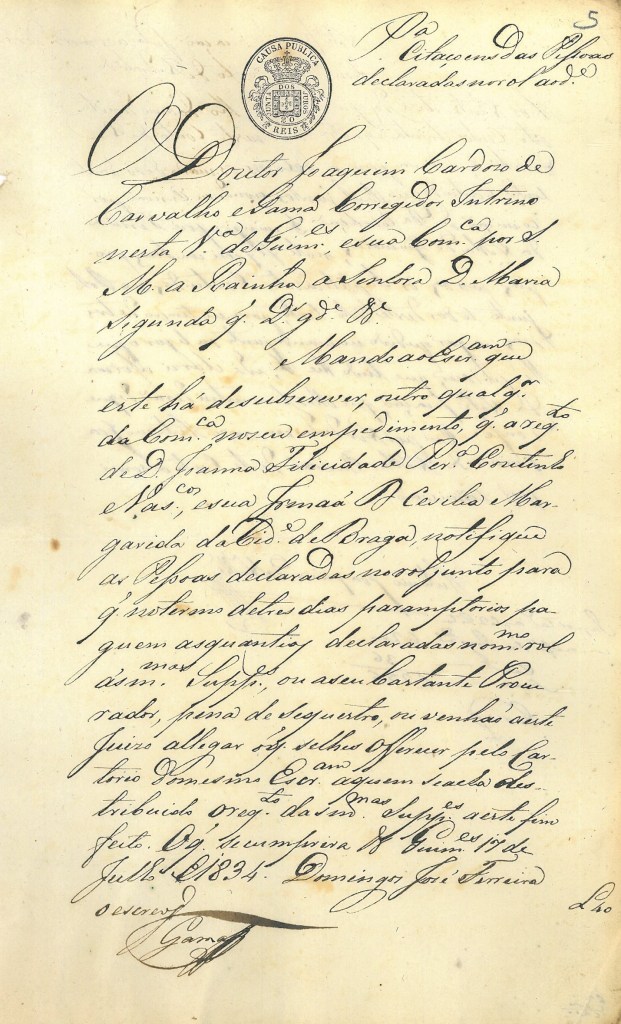 5
P.ª
Citaçoens das Pessoas
declaradas no rol ao d.e
CAUSA PUBLICA
JUNTA DOS JUROS
20
REIS
O Doutor Joaquim Cardoso de
Carvalho e Gama Corregedor Intrino
nesta V.ª de Guim.es, e sua Com.ca por S.
M. a Rainha a Senhora D. Maria
Sigunda q. D.s g.de &.
Mando ao Escr.am que
este há de subscrever, outro qualq.r
da Com.ca no seu empedimento, q. a req.to
de D. Joanna Filicidade Per.ª Coutinho
e Vas.cos, e sua Irmaã D Cecilia Mar-
garida da Cid.e de Braga, notifique
as Pessoas declaradas no rol junto para
q. no termo de tres dias paramptorios pa-
guem as quantias declaradas no m.mo rol
ás m.mas Supp.es, ou a seu bastante Procu
rador, pena de sequestro, ou venhaõ a este
Juizo allegar o q. se lhes offerecer pelo Car-
torio do mesmo Escr.am a quem se acha des-
tribuido o req.to das m.mas Supp.es a este fim
feito. O q. se cumprirá & Guim.es 17 de
Julh.o 1834. Domingos José Ferreira
o escrevj
Gama
L 40